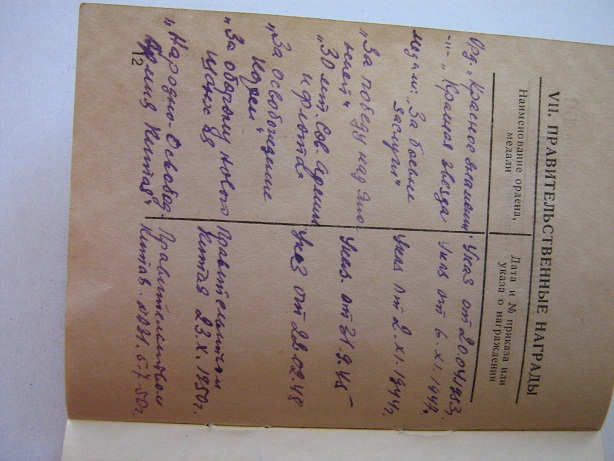 VII. ПРАВИТЕЛЬСТВЕННЫЕ НАГРАДЫ
Наименование ордена, медали
Дата и № приказа или указа о награждении
Орд. „Красное знамения" Указ от 20.04.1953г.
-"- „Красная звезда Указ от 6.XI.1947г.
медали: „За боевые заслуги" Указ от 2.XI.1944г.
„За победу над Японией" Указ. от 31.9.45
„30 лет. Сов. Армии и флота" Указ от 22.02.48
„За освобождение Кореи"
„За оборону нового Правительством Китая 23.X.1950г.
„Народно-Освобод. Армия Китая" Правительством Китая. 5.7.50г.
12